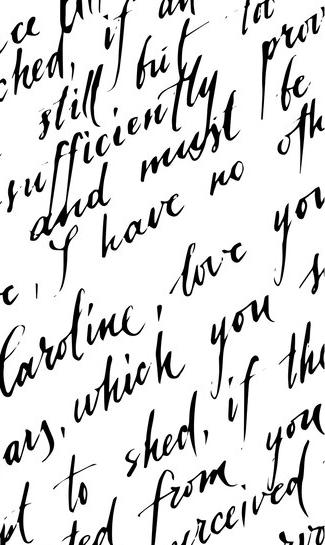 ched, if an too
still, but prov
sufficiently be
and must oth
I have no
Caroline, love you
ars, which you s
shed, if the
to from you
ted erceived